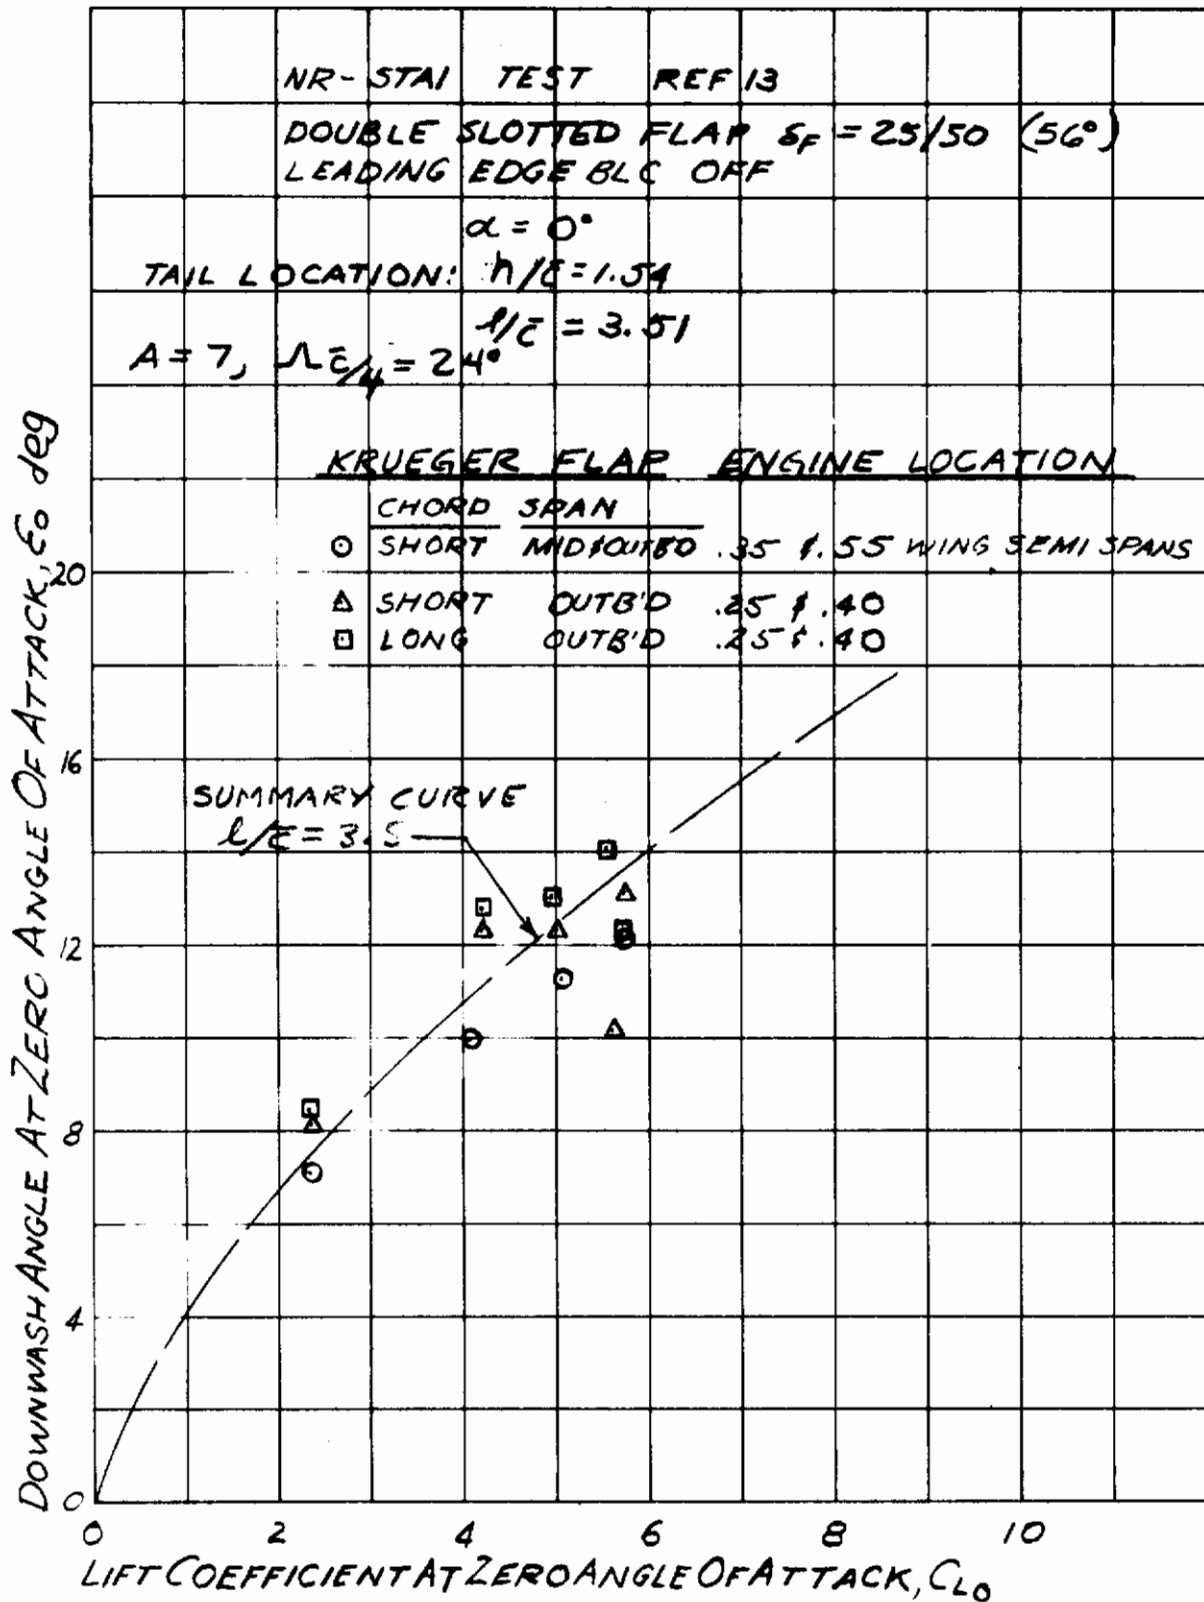 NR-STAI TEST REF 13
DOUBLE SLOTTED FLAP δF = 25/50 (56°)
LEADING EDGE BLC OFF
α = 0°
TAIL LOCATION: h/c̄ = 1.54
l/c̄ = 3.51
A = 7, Λ c̄/4 = 24°
KRUEGER FLAP ENGINE LOCATION
CHORD SPAN
SHORT MID & OUTBD .35 & .55 WING SEMI SPANS
SHORT OUTB'D .25 & .40
LONG OUTB'D .25 & .40
SUMMARY CURVE
l/c̄ = 3.5
DOWNWASH ANGLE AT ZERO ANGLE OF ATTACK, ε₀ deg
20
16
12
8
4
0
0 2 4 6 8 10
LIFT COEFFICIENT AT ZERO ANGLE OF ATTACK, CL₀